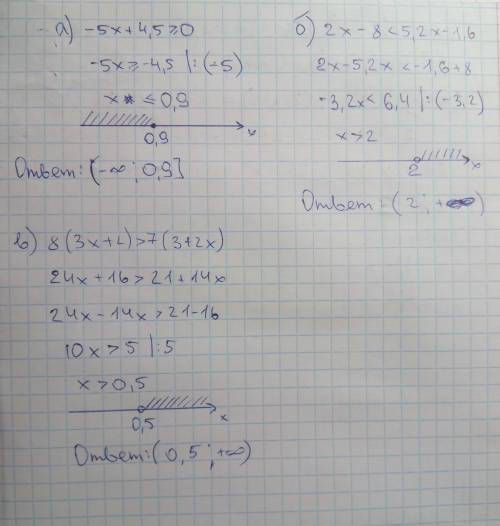 а) -5x + 4,5 ≥ 0
-5x ≥ -4,5 |:(-5)
x ≤ 0,9
0,9 x
Ответ: (-∞; 0,9]
б) 2x - 8 < 5,2x - 1,6
2x - 5,2x < -1,6 + 8
-3,2x < 6,4 |:(-3,2)
x > 2
2 x
Ответ: (2; +∞)
в) 8(3x+2) > 7(3+2x)
24x + 16 > 21 + 14x
24x - 14x > 21 - 16
10x > 5 |:5
x > 0,5
0,5 x
Ответ: (0,5; +∞)